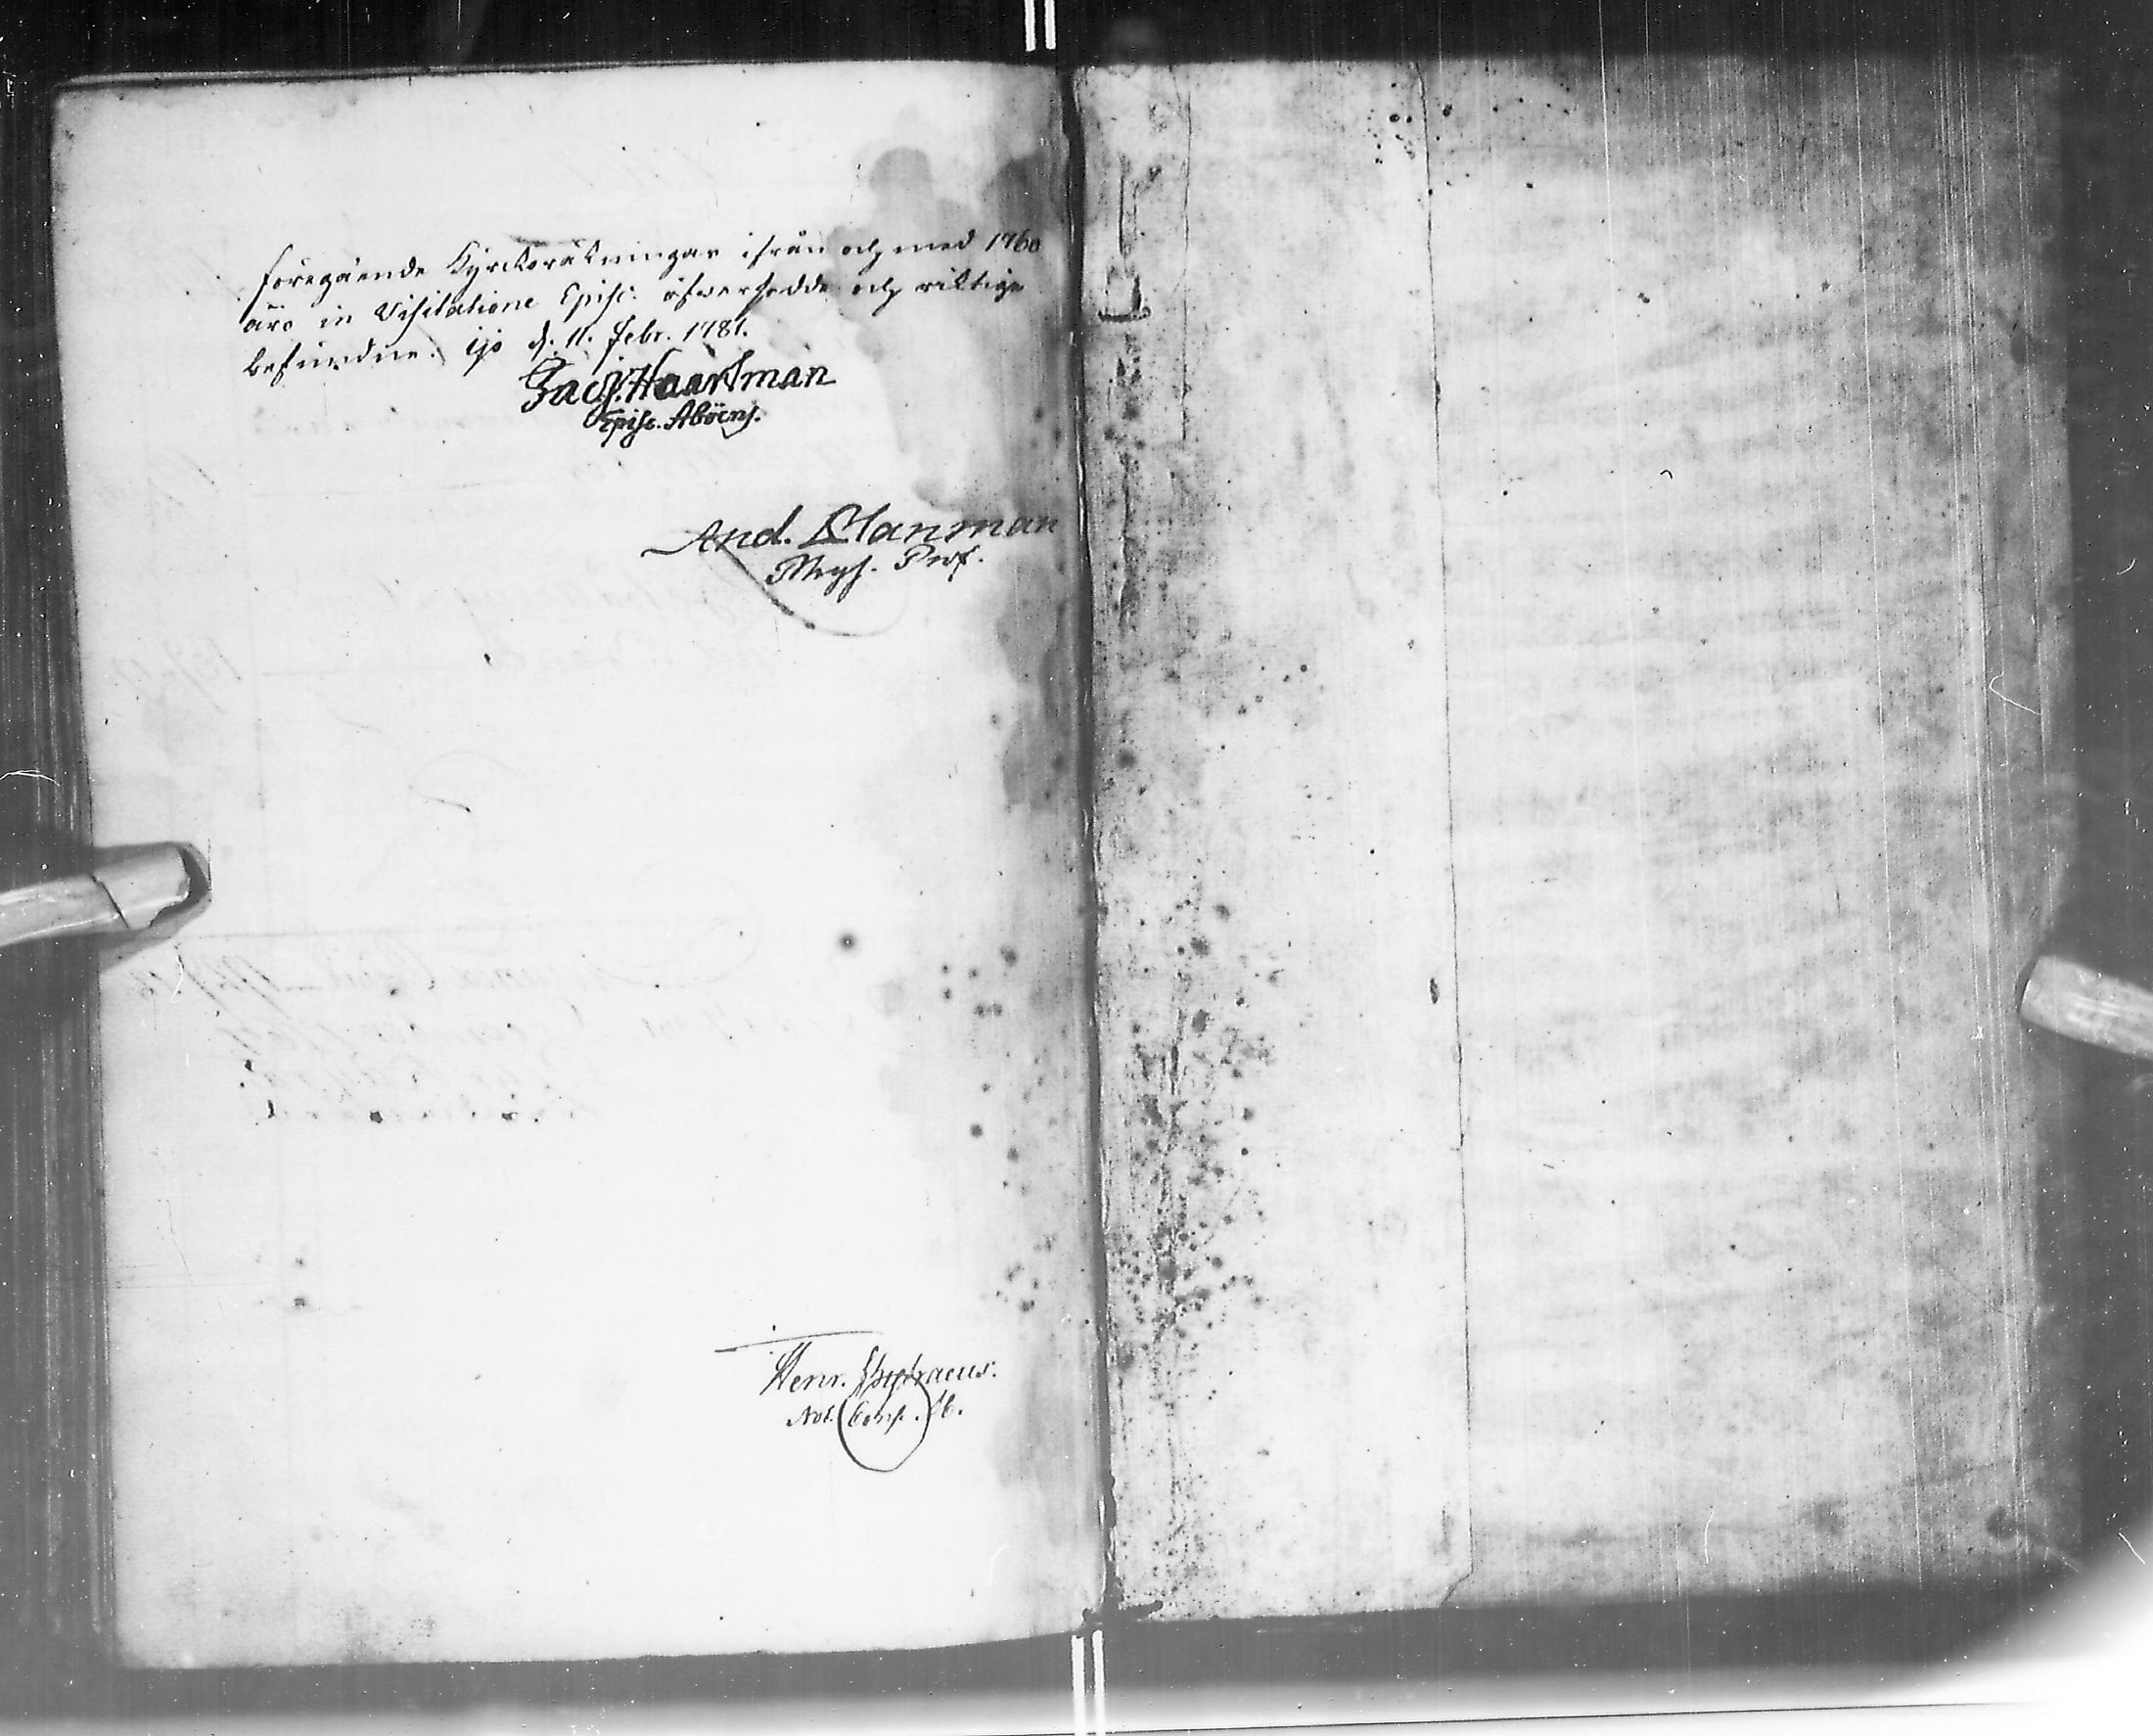 föregående Kyrckoräkningar ifrån och med 1760
äro in Visitatione Episc. öfwersedde och riktige
befundne. Ijo d. 11. Febr. 1781.
Jac. Haartman
Episc. Aboëns.
And. Planman
Phys. Prof.
Henr. Chydraeus.
Not. Cons.